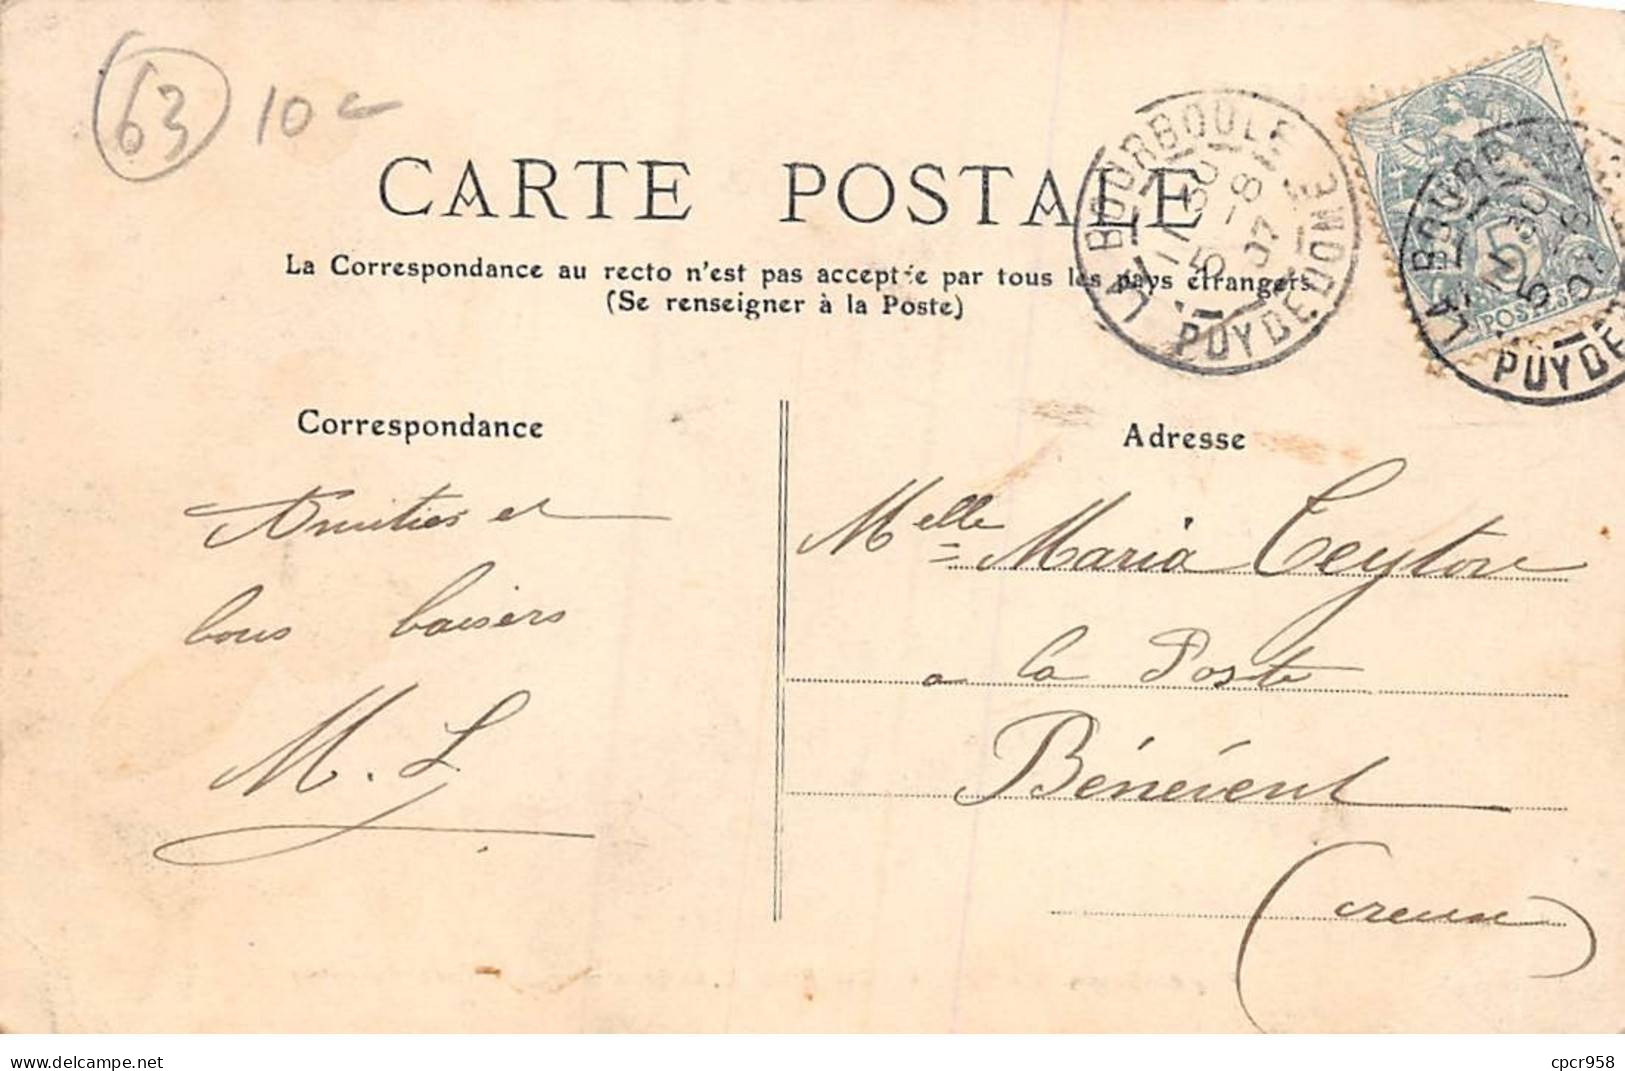 63 10 c
CARTE POSTALE
La Correspondance au recto n'est pas acceptée par tous les pays étrangers.
(Se renseigner à la Poste)
LA BOURBOULE
11 30
5 - 8
07
PUY DE DOME
LA BOURB
11 30
5 - 8
07
PUY DE
5
POSTES
Correspondance
Amitiés et
bons baisers
M. L.
Adresse
Melle Maria Ceytore
a la Poste
Bénévent
(Creuse)
www.delcampe.net
cpcr958